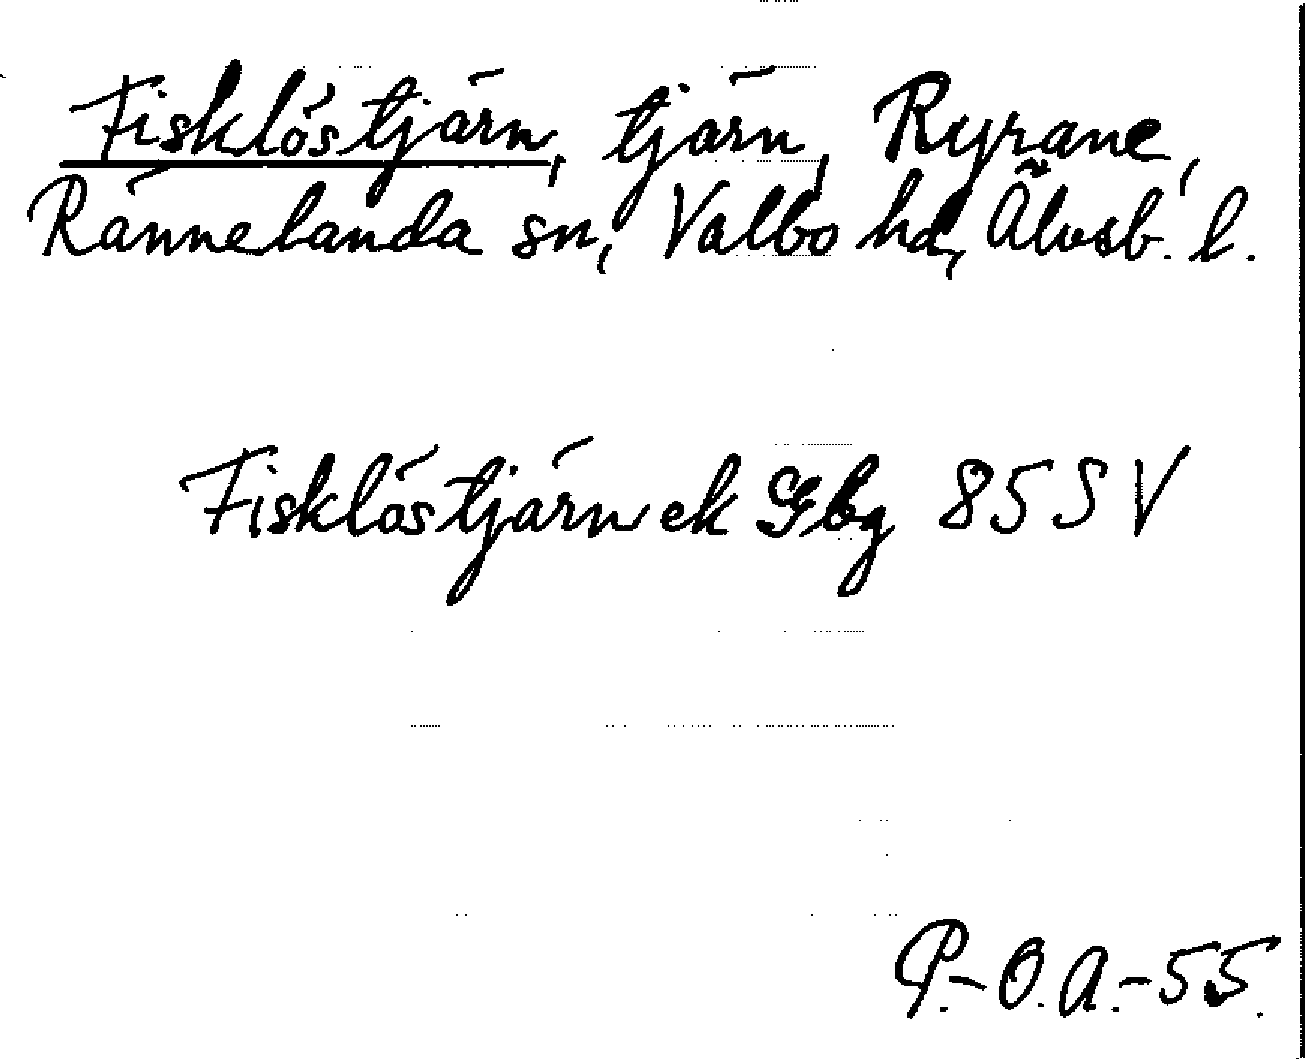 Fisklöstjärn, tjärn, Ryrane,
Rännelanda sn, Valbo hd, Älvsb. l.
Fisklöstjärn ek Gbg 85 SV
P.-O.A.-55.